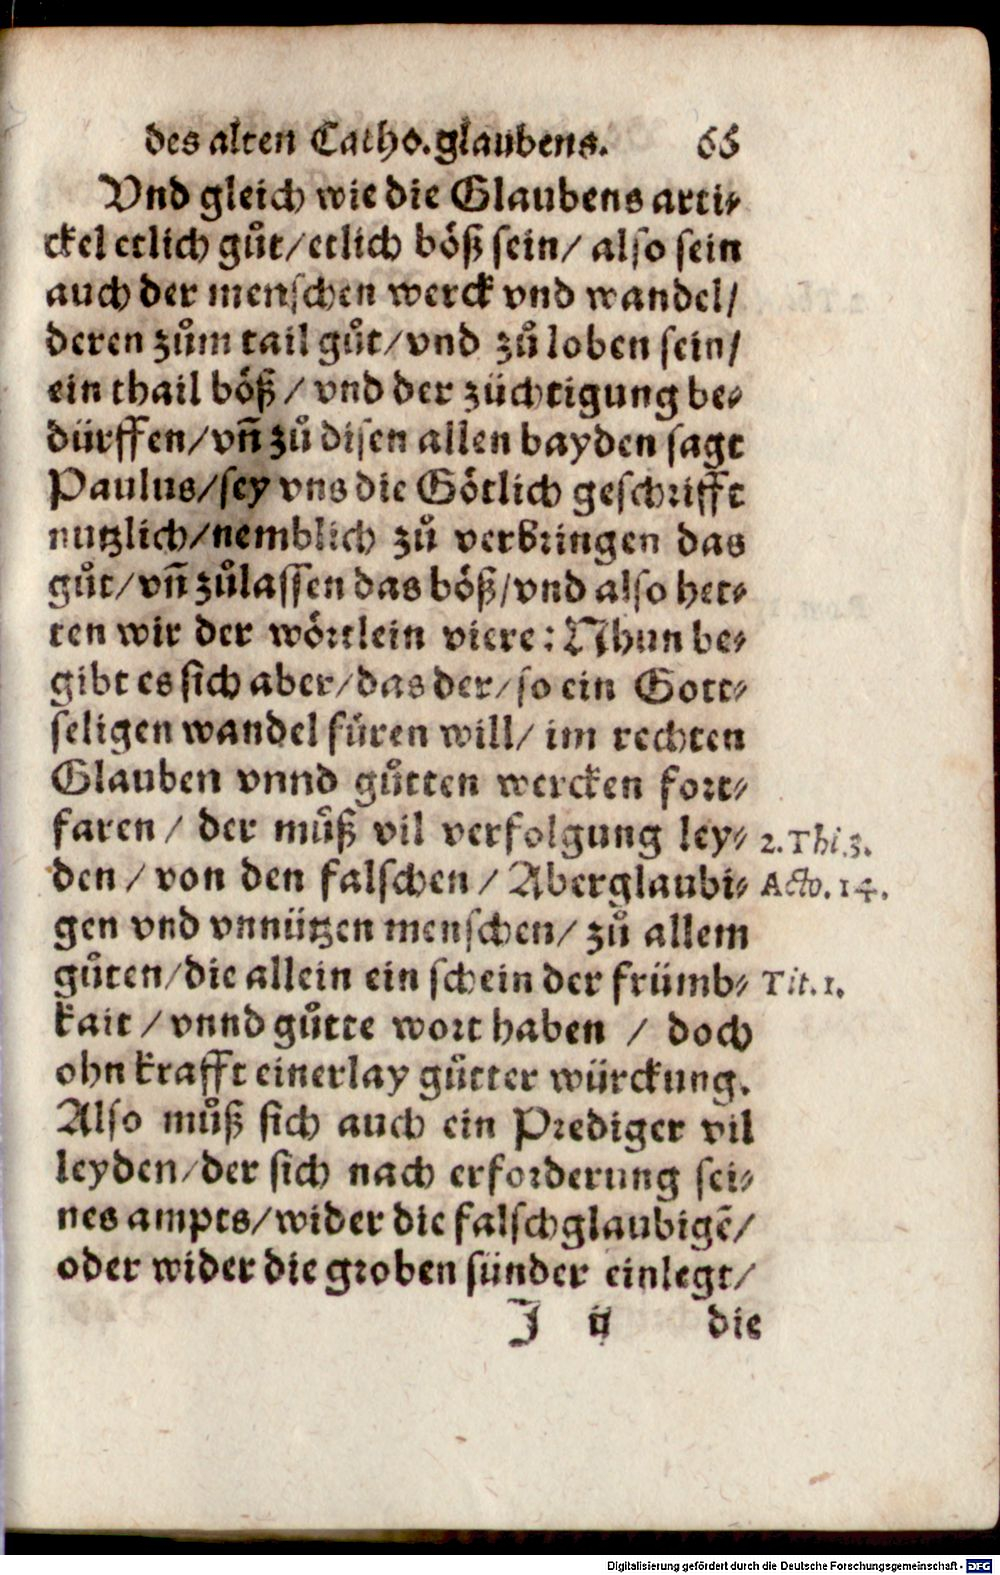 des alten Catho. glaubens. 66
Vnd gleich wie die Glaubens arti⸗
ckel etlich gůt/ etlich böß sein/ also sein
auch der menschen werck vnd wandel/
deren zům tail gůt/ vnd zů loben sein/
ein thail böß / vnd der züchtigung be⸗
dürffen/ vñ zů disen allen bayden sagt
Paulus/ sey vns die Götlich geschrifft
nutzlich/ nemblich zů verbringen das
gůt/ vñ zůlassen das böß/ vnd also het⸗
ten wir der wörtlein viere: Nhun be⸗
gibt es sich aber/ das der/ so ein Gott⸗
seligen wandel füren will/ im rechten
Glauben vnnd gůtten wercken fort⸗
faren / der můß vil verfolgung ley⸗ 2. Thi.3.
den / von den falschen / Aberglaubi⸗ Acto. 14.
gen vnd vnnützen menschen/ zů allem
gůten/ die allein ein schein der frümb⸗ Tit. 1.
kait / vnnd gůtte wort haben / doch
ohn krafft einerlay gůtter würckung.
Also můß sich auch ein Prediger vil
leyden/ der sich nach erforderung sei⸗
nes ampts/ wider die falschglaubigẽ/
oder wider die groben sünder einlegt/
J ij die
Digitalisierung gefördert durch die Deutsche Forschungsgemeinschaft - DFG